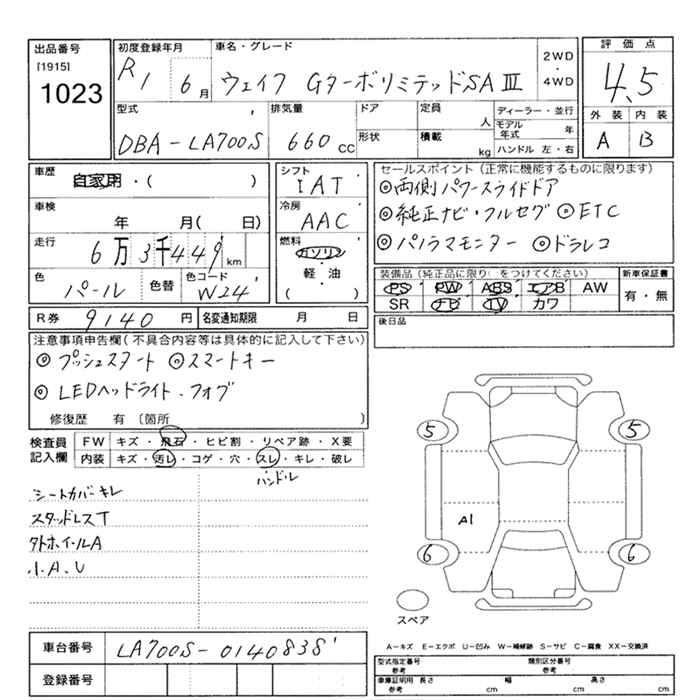 出品番号
[1915]
1023
初度登録年月
R1 6月
車名・グレード
ウェイク Gターボリミテッド SAⅢ
2WD
・
4WD
評価点
4.5
外装 内装
A B
型式
DBA-LA700S
排気量
660 CC
ドア
形状
定員
人
積載
kg
ディーラー・並行
モデル年式 年
ハンドル 左・右
車歴
自家用・( )
車検
年 月( 日)
走行
6万3千449km
色
パール
色替
色コード
W24
シフト
IAT
冷房
AAC
燃料
ガソリン
・
軽・油
( )
R券
9140円
名変通知期限 月 日
セールスポイント(正常に機能するものに限ります)
◎両側パワースライドドア
◎純正ナビ・フルセグ ◎ETC
◎パノラマモニター ◎ドラレコ
装備品(純正品に限り○をつけてください)
PS PW ABS エアB AW
SR ナビ TV カワ
新車保証書
有・無
後日品
注意事項申告欄(不具合内容等は具体的に記入して下さい)
◎プッシュスタート ◎スマートキー
◎LEDヘッドライト・フォグ
修復歴 有〔箇所 〕
検査員
記入欄
FW キズ・飛石・ヒビ割・リペア跡・X要
内装 キズ・汚レ・コゲ・穴・スレ・キレ・破レ
ハンドル
シートカバーキレ
スタッドレスT
タトホイールA
小A、U
5 5
A1
6 6
スペア
A-キズ E-エクボ U-凹み W-補修跡 S-サビ C-腐食 XX-交換済
車台番号
LA700S-0140838
登録番号
型式指定番号
参考
類別区分番号
車庫証明用
参考
長さ cm 幅 cm 高さ cm